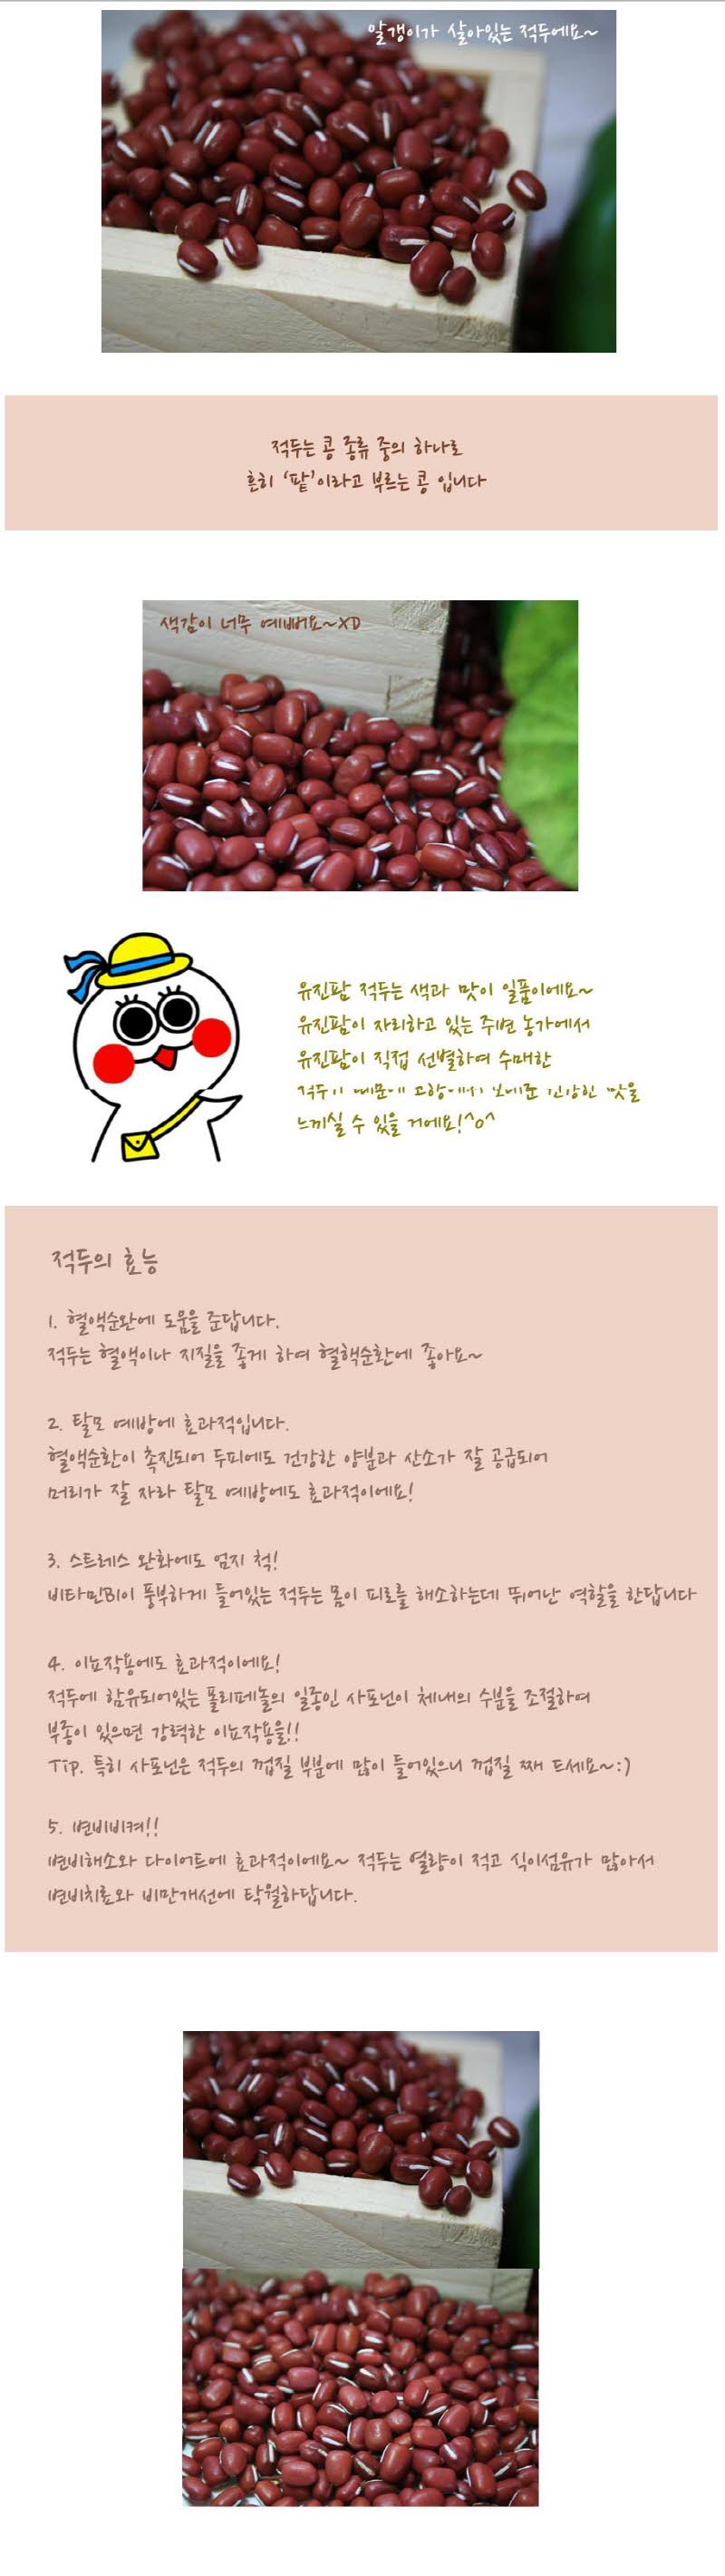 알갱이가 살아있는 적두에요~
적두는 콩 종류 중의 하나로
흔히 ‘팥’이라고 부르는 콩 입니다
색감이 너무 예뻐요~XD
유진팜 적두는 색과 맛이 일품이에요~
유진팜이 자리하고 있는 주변 농가에서
유진팜이 직접 선별하여 수매한
맛을
느끼실 수 있을 거에요!^o^
적두의 효능
1. 혈액순환에 도움을 준답니다.
적두는 혈액이나 지질을 좋게 하여 혈핵순환에 좋아요~
2. 탈모 예방에 효과적입니다.
혈액순환이 촉진되어 두피에도 건강한 양분과 산소가 잘 공급되어
머리가 잘 자라 탈모 예방에도 효과적이에요!
3. 스트레스 완화에도 엄지 척!
비타민B1이 풍부하게 들어있는 적두는 몸이 피로를 해소하는데 뛰어난 역할을 한답니다
4. 이뇨작용에도 효과적이에요!
적두에 함유되어있는 폴리페놀의 일종인 사포닌이 체내의 수분을 조절하여
부종이 있으면 강력한 이뇨작용을!!
Tip. 특히 사포닌은 적두의 껍질 부분에 많이 들어있으니 껍질 째 드세요~:)
5. 변비비켜!!
변비해소와 다이어트에 효과적이에요~ 적두는 열량이 적고 식이섬유가 많아서
변비치료와 비만개선에 탁월하답니다.